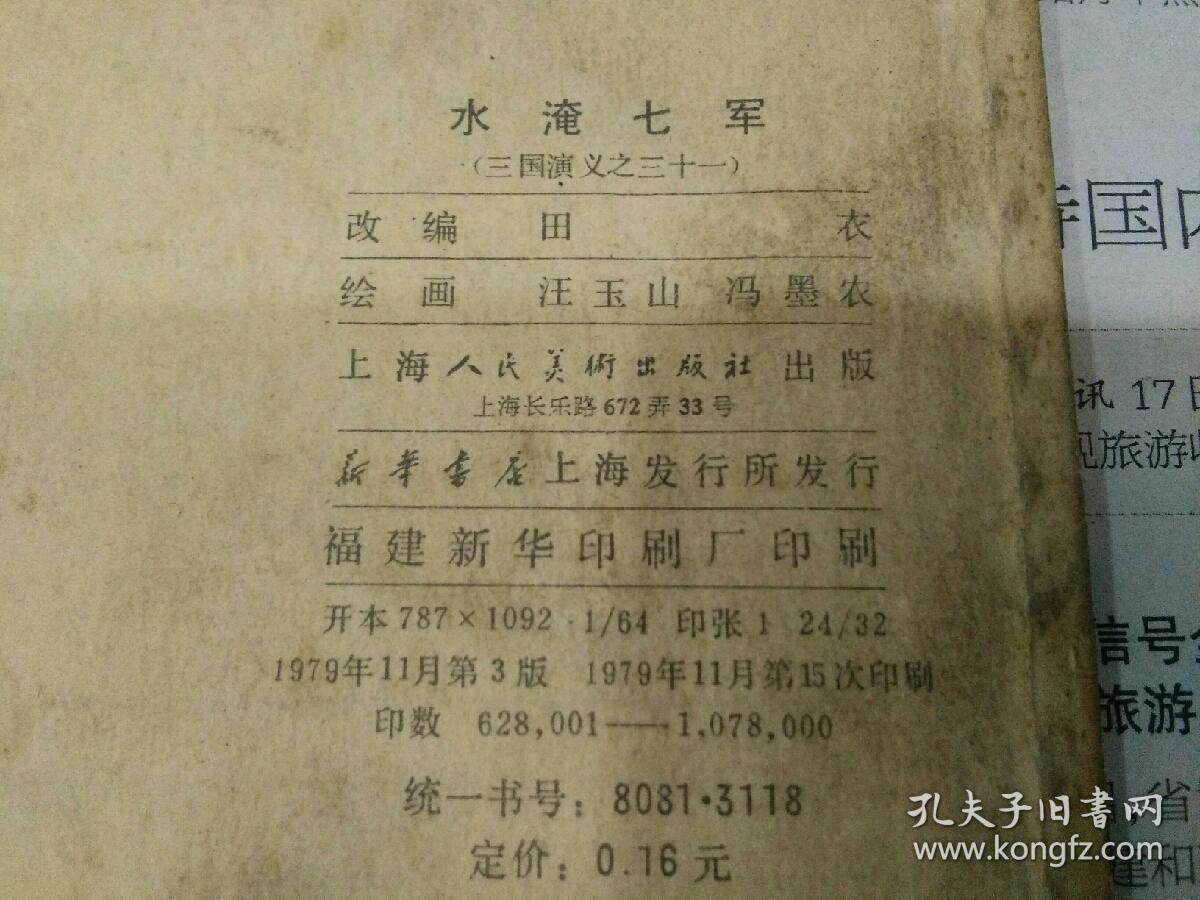 水淹七军
(三国演义之三十一)
改编 田衣
绘画 汪玉山 冯墨农
上海人民美術出版社出版
上海长乐路672弄33号
新华書店上海发行所发行
福建新华印刷厂印刷
开本 787×1092 1/64 印张 1 24/32
1979年11月第3版 1979年11月第15次印刷
印数 628,001——1,078,000
统一书号：8081·3118
定价：0.16元
国内
讯 17日
见旅游收
信号
旅游
省
和
孔夫子旧书网
www.kongfz.com